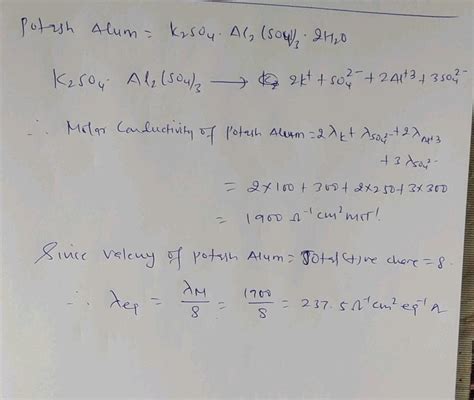 Potash Alum = K₂SO₄. Al₂(SO₄)₃. 2H₂O
K₂SO₄. Al₂(SO₄)₃ → 2K⁺ + SO₄²⁻ + 2Al⁺³ + 3SO₄²⁻
∴ Molar Conductivity of Potash Alum = 2λK⁺ + λSO₄²⁻ + 2λAl⁺³
+ 3λSO₄²⁻
= 2×100 + 300 + 2×250 + 3×300
= 1900 Ω⁻¹cm²mol⁻¹.
Since valency of Potash Alum = Total (+)ve charge = 8.
∴ λeq = λM/8 = 1900/8 = 237.5 Ω⁻¹cm²eq⁻¹